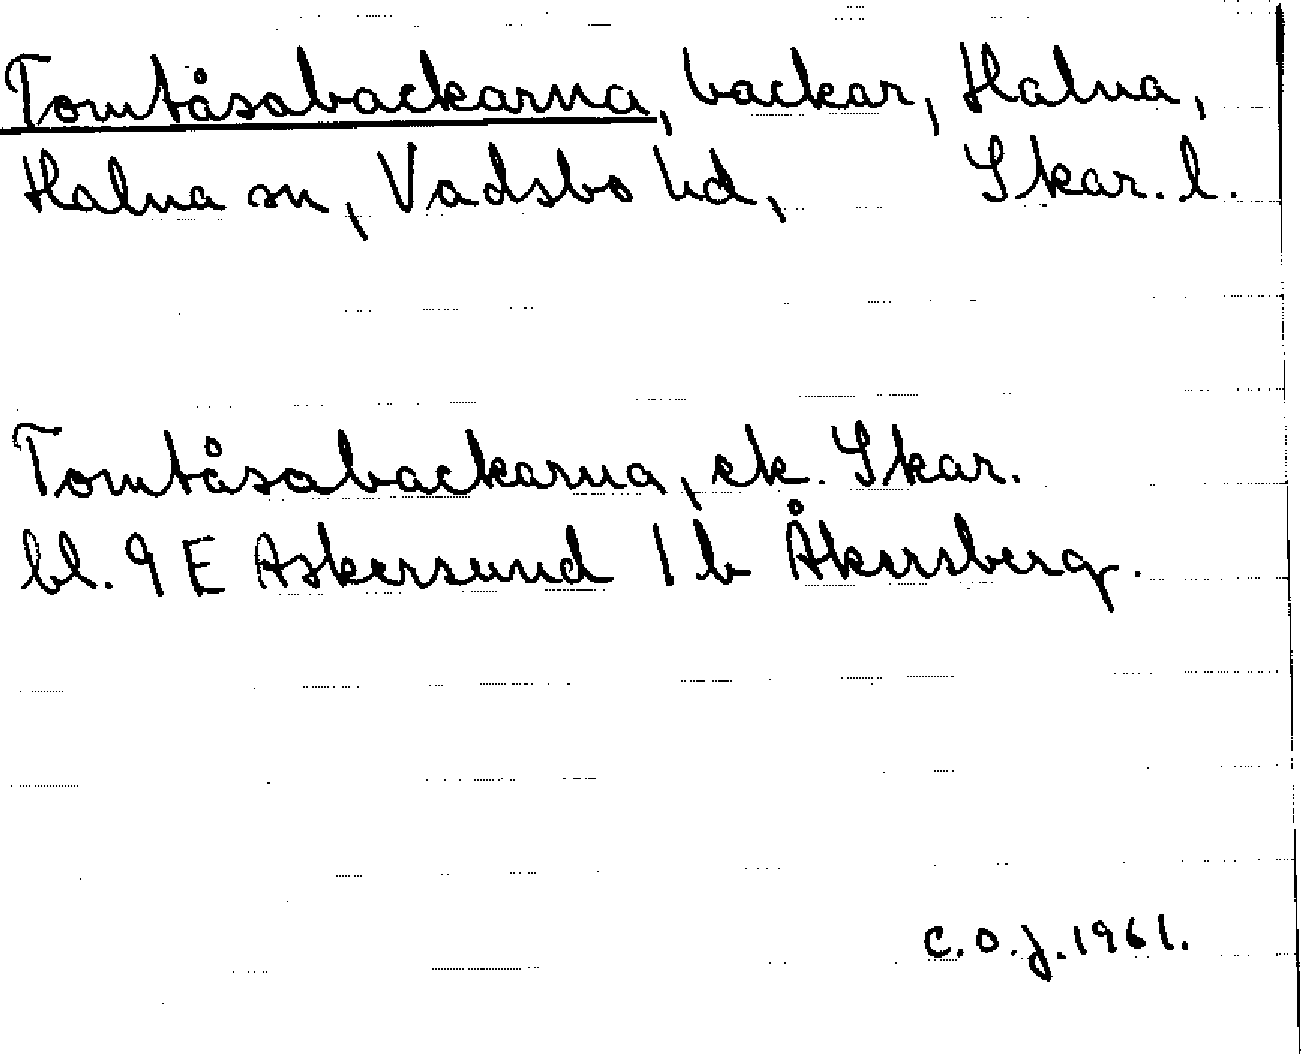 Tomtåsabackarna, backar, Halna,
Halna sn, Vadsbo hd, Skar. l.
Tomtåsabackarna, ek. Skar.
bl. 9 E Askersund 1 b Åkersberg.
C.O.J. 1961.